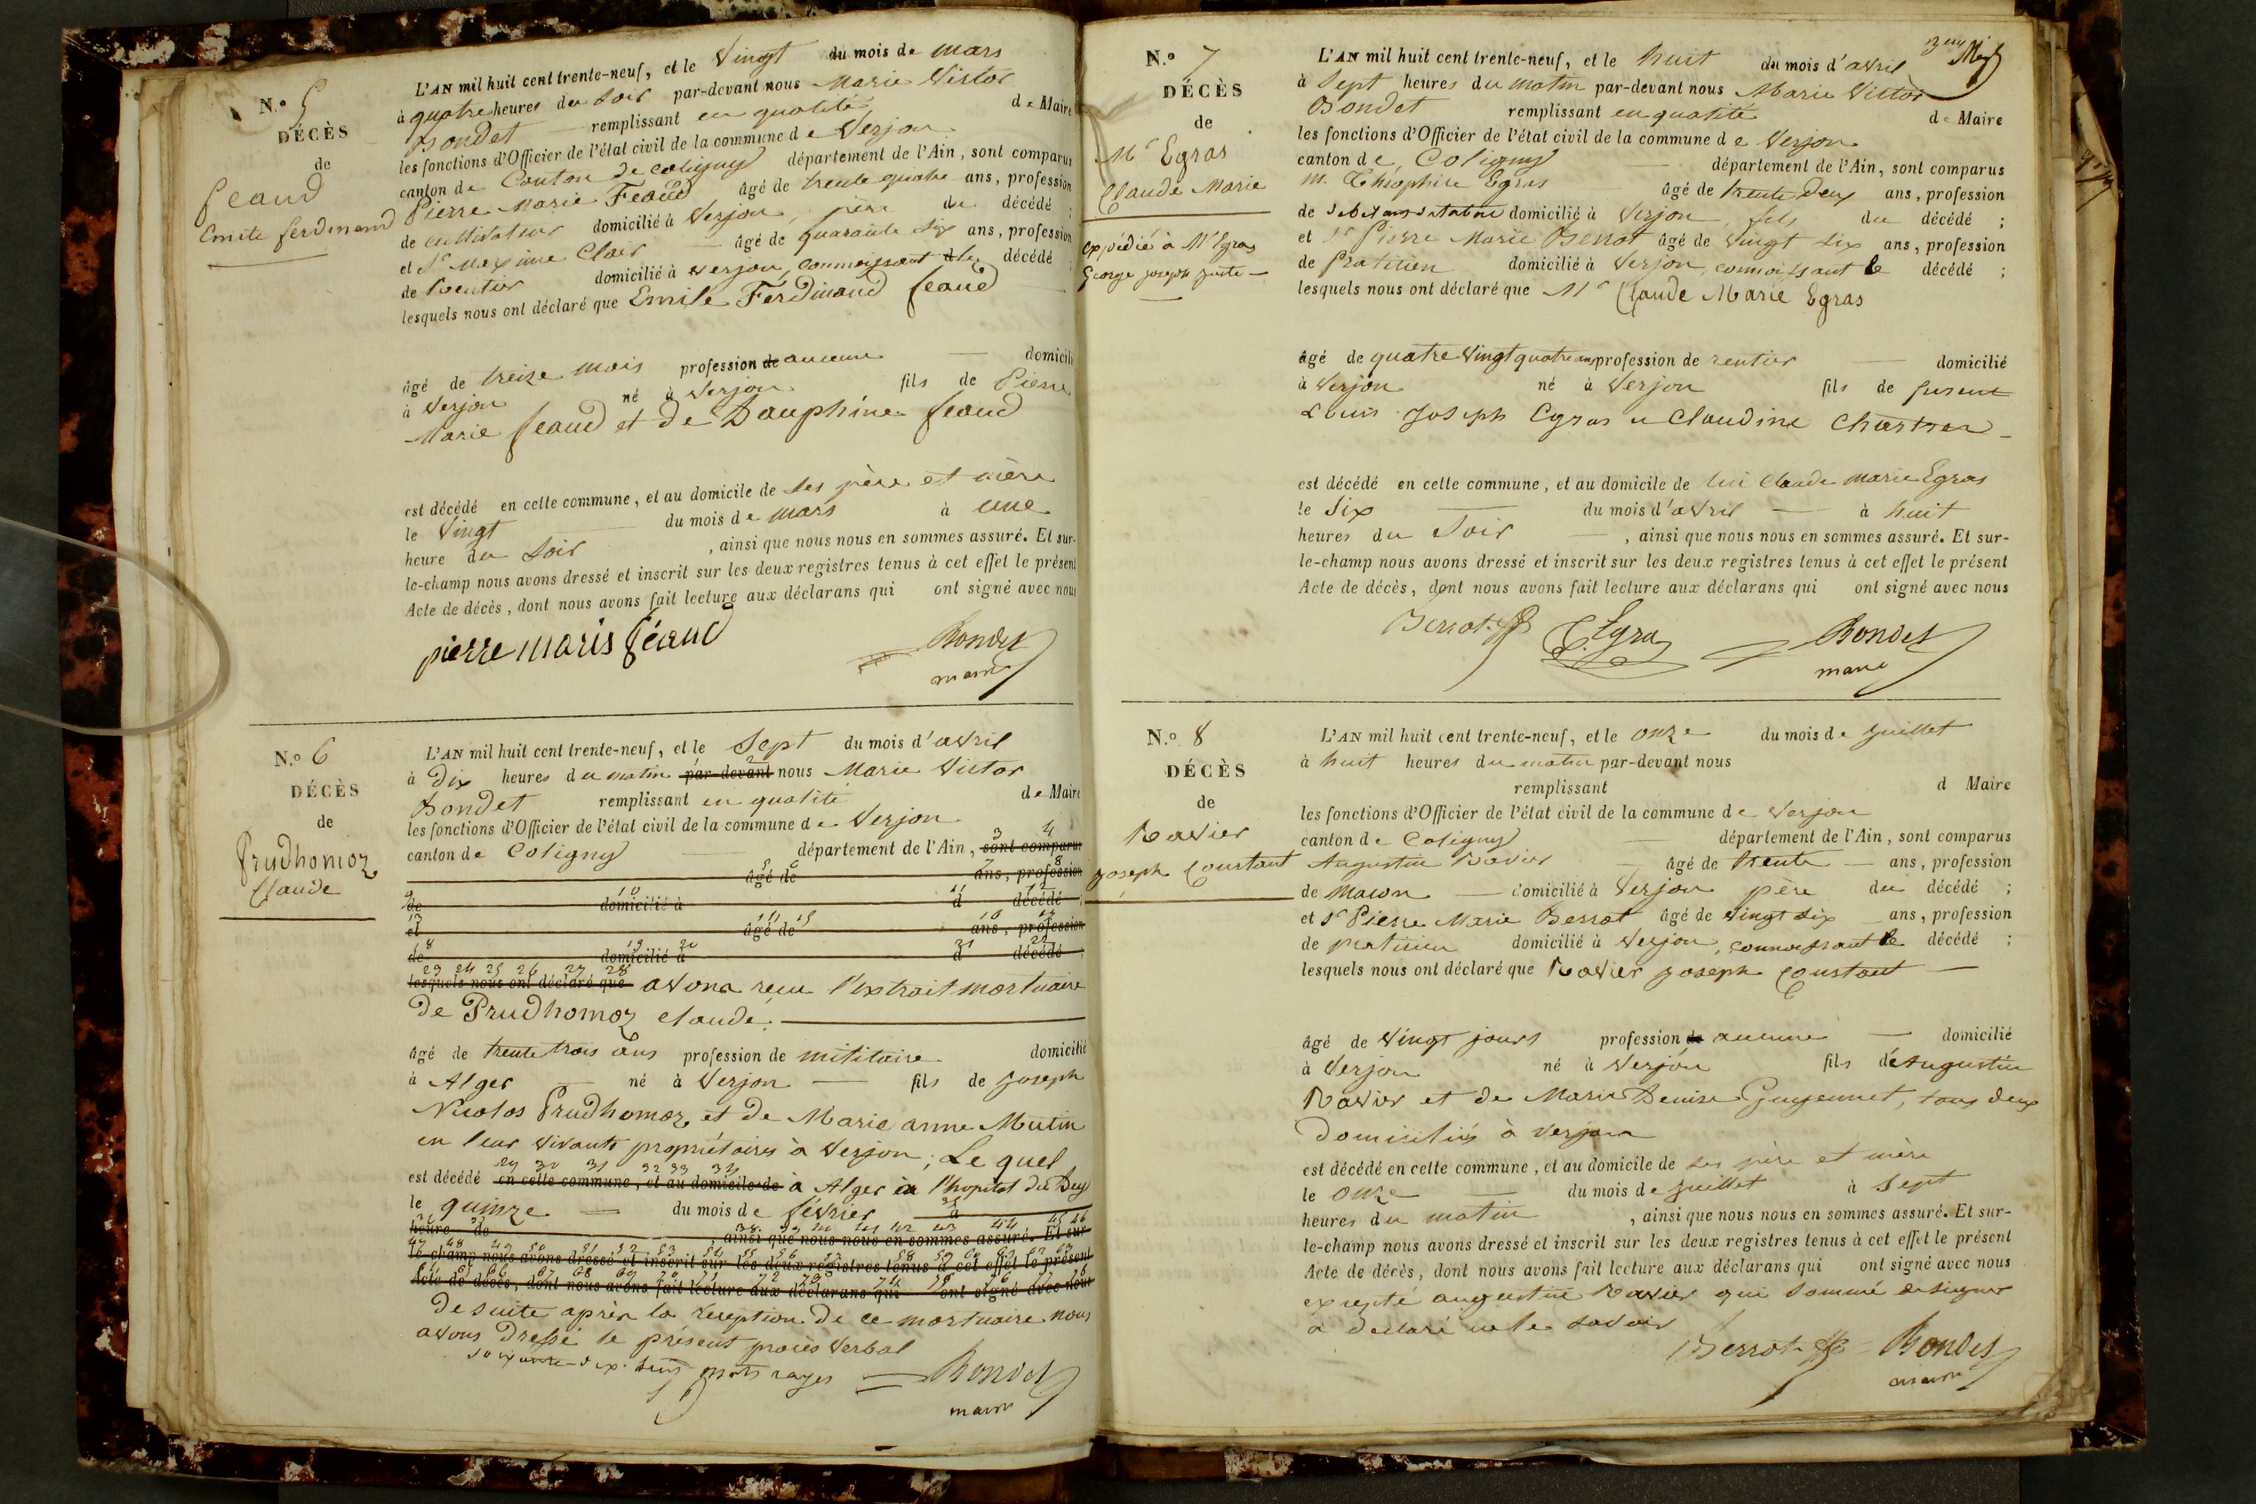 N.º 5
DÉCÈS
de
feaud
Emile ferdinand
L'AN mil huit cent trente-neuf, et le Vingt du mois de mars
à quatre heures du soir par-devant nous Marie Victor
Bondet remplissant en qualité de Maire
les fonctions d'Officier de l'état civil de la commune de Verjon
canton de Conton de coligny département de l'Ain, sont comparus
Pierre Marie Feaud âgé de trente quatre ans, profession
de cultivateur domicilié à Verjon, père du décédé ;
et Sr Maxime Clair âgé de quarante six ans, profession
de Rentier domicilié à verjon, connoissant le décédé ;
lesquels nous ont déclaré que Emile Ferdinand feaud
âgé de treize mois profession de aucune domicilié
à Verjon né à Verjon fils de Pierre
Marie feaud et de Dauphine feaud
est décédé en cette commune, et au domicile de ses père et mère
le Vingt du mois de mars à une
heure du soir , ainsi que nous nous en sommes assuré. Et sur-
le-champ nous avons dressé et inscrit sur les deux registres tenus à cet effet le présent
Acte de décès, dont nous avons fait lecture aux déclarans qui ont signé avec nous
pierre maris féaud Bondet
maire
N.º 6
DÉCÈS
de
Prudhomoz
Claude
L'AN mil huit cent trente-neuf, et le Sept du mois d'avril
à Dix heures du matin par-devant nous Marie Victor
Bondet remplissant en qualité de Maire
les fonctions d'Officier de l'état civil de la commune de Verjon
canton de Coligny département de l'Ain, sont comparus
âgé de ans, profession
de domicilié à d décédé ;
et âgé de ans, profession
de domicilié à d décédé ;
lesquels nous ont déclaré que avons reçu l'extrait mortuaire
De Prudhomoz claude.
âgé de trente trois ans profession de militaire domicilié
à Alger né à Verjon fils de joseph
Nicolas Prudhomoz et de Marie anne Mutin
en leur vivants propriétaires à Verjon ; Le quel
est décédé en cette commune, et au domicile de à Alger à l'hopital du Dey
le quinze du mois de février à
heure du , ainsi que nous nous en sommes assuré. Et sur-
le-champ nous avons dressé et inscrit sur les deux registres tenus à cet effet le présent
Acte de décès, dont nous avons fait lecture aux déclarans qui ont signé avec nous
De suite après la reception de ce mortuaire nous
avons Dressé le présent procès Verbal
soixante-dix-huit mots rayes Bondet
maire
N.º 7
DÉCÈS
de
Mr Egras
Claude Marie
expédié à Mr Egras
George joseph juste
L'AN mil huit cent trente-neuf, et le huit du mois d'avril
à Sept heures du matin par-devant nous Marie Victor
Bondet remplissant en qualité de Maire
les fonctions d'Officier de l'état civil de la commune de Verjon
canton de Coligny département de l'Ain, sont comparus
m. Théophile Egras âgé de trente deux ans, profession
de domicilié à Verjon, fils du décédé ;
et Sr Pierre Marie Berrot âgé de Vingt six ans, profession
de Praticien domicilié à Verjon, connoissant le décédé ;
lesquels nous ont déclaré que Mr Claude Marie Egras
âgé de quatre Vingt quatre ans profession de rentier domicilié
à Verjon né à Verjon fils de furent
Louis Joseph Egras et Claudine Chartron
est décédé en cette commune, et au domicile de lui Claude Marie Egras
le Six du mois d'avril à huit
heures du Soir , ainsi que nous nous en sommes assuré. Et sur-
le-champ nous avons dressé et inscrit sur les deux registres tenus à cet effet le présent
Acte de décès, dont nous avons fait lecture aux déclarans qui ont signé avec nous
Berrot T. Egra Bondet
maire
N.º 8
DÉCÈS
de
Ravier
joseph Constant
L'AN mil huit cent trente-neuf, et le onze du mois de juillet
à huit heures du matin par-devant nous
remplissant d Maire
les fonctions d'Officier de l'état civil de la commune de Verjon
canton de Coligny département de l'Ain, sont comparus
Augustin Ravier âgé de trente ans, profession
de Macon domicilié à Verjon père du décédé ;
et Sr Pierre Marie Berrot âgé de Vingt six ans, profession
de praticien domicilié à Verjon, connoissant le décédé ;
lesquels nous ont déclaré que Ravier joseph Constant
âgé de Vingt jours profession de aucune domicilié
à Verjon né à Verjon fils d'Augustin
Ravier et de Marie Denise Guyennet, tous deux
Domiciliés à verjon
est décédé en cette commune, et au domicile de ses père et mère
le onze du mois de juillet à Sept
heures du matin , ainsi que nous nous en sommes assuré. Et sur-
le-champ nous avons dressé et inscrit sur les deux registres tenus à cet effet le présent
Acte de décès, dont nous avons fait lecture aux déclarans qui ont signé avec nous
excepté augustin Ravier qui sommé de signer
a declaré ne le savoir
Berrot Bondet
maire